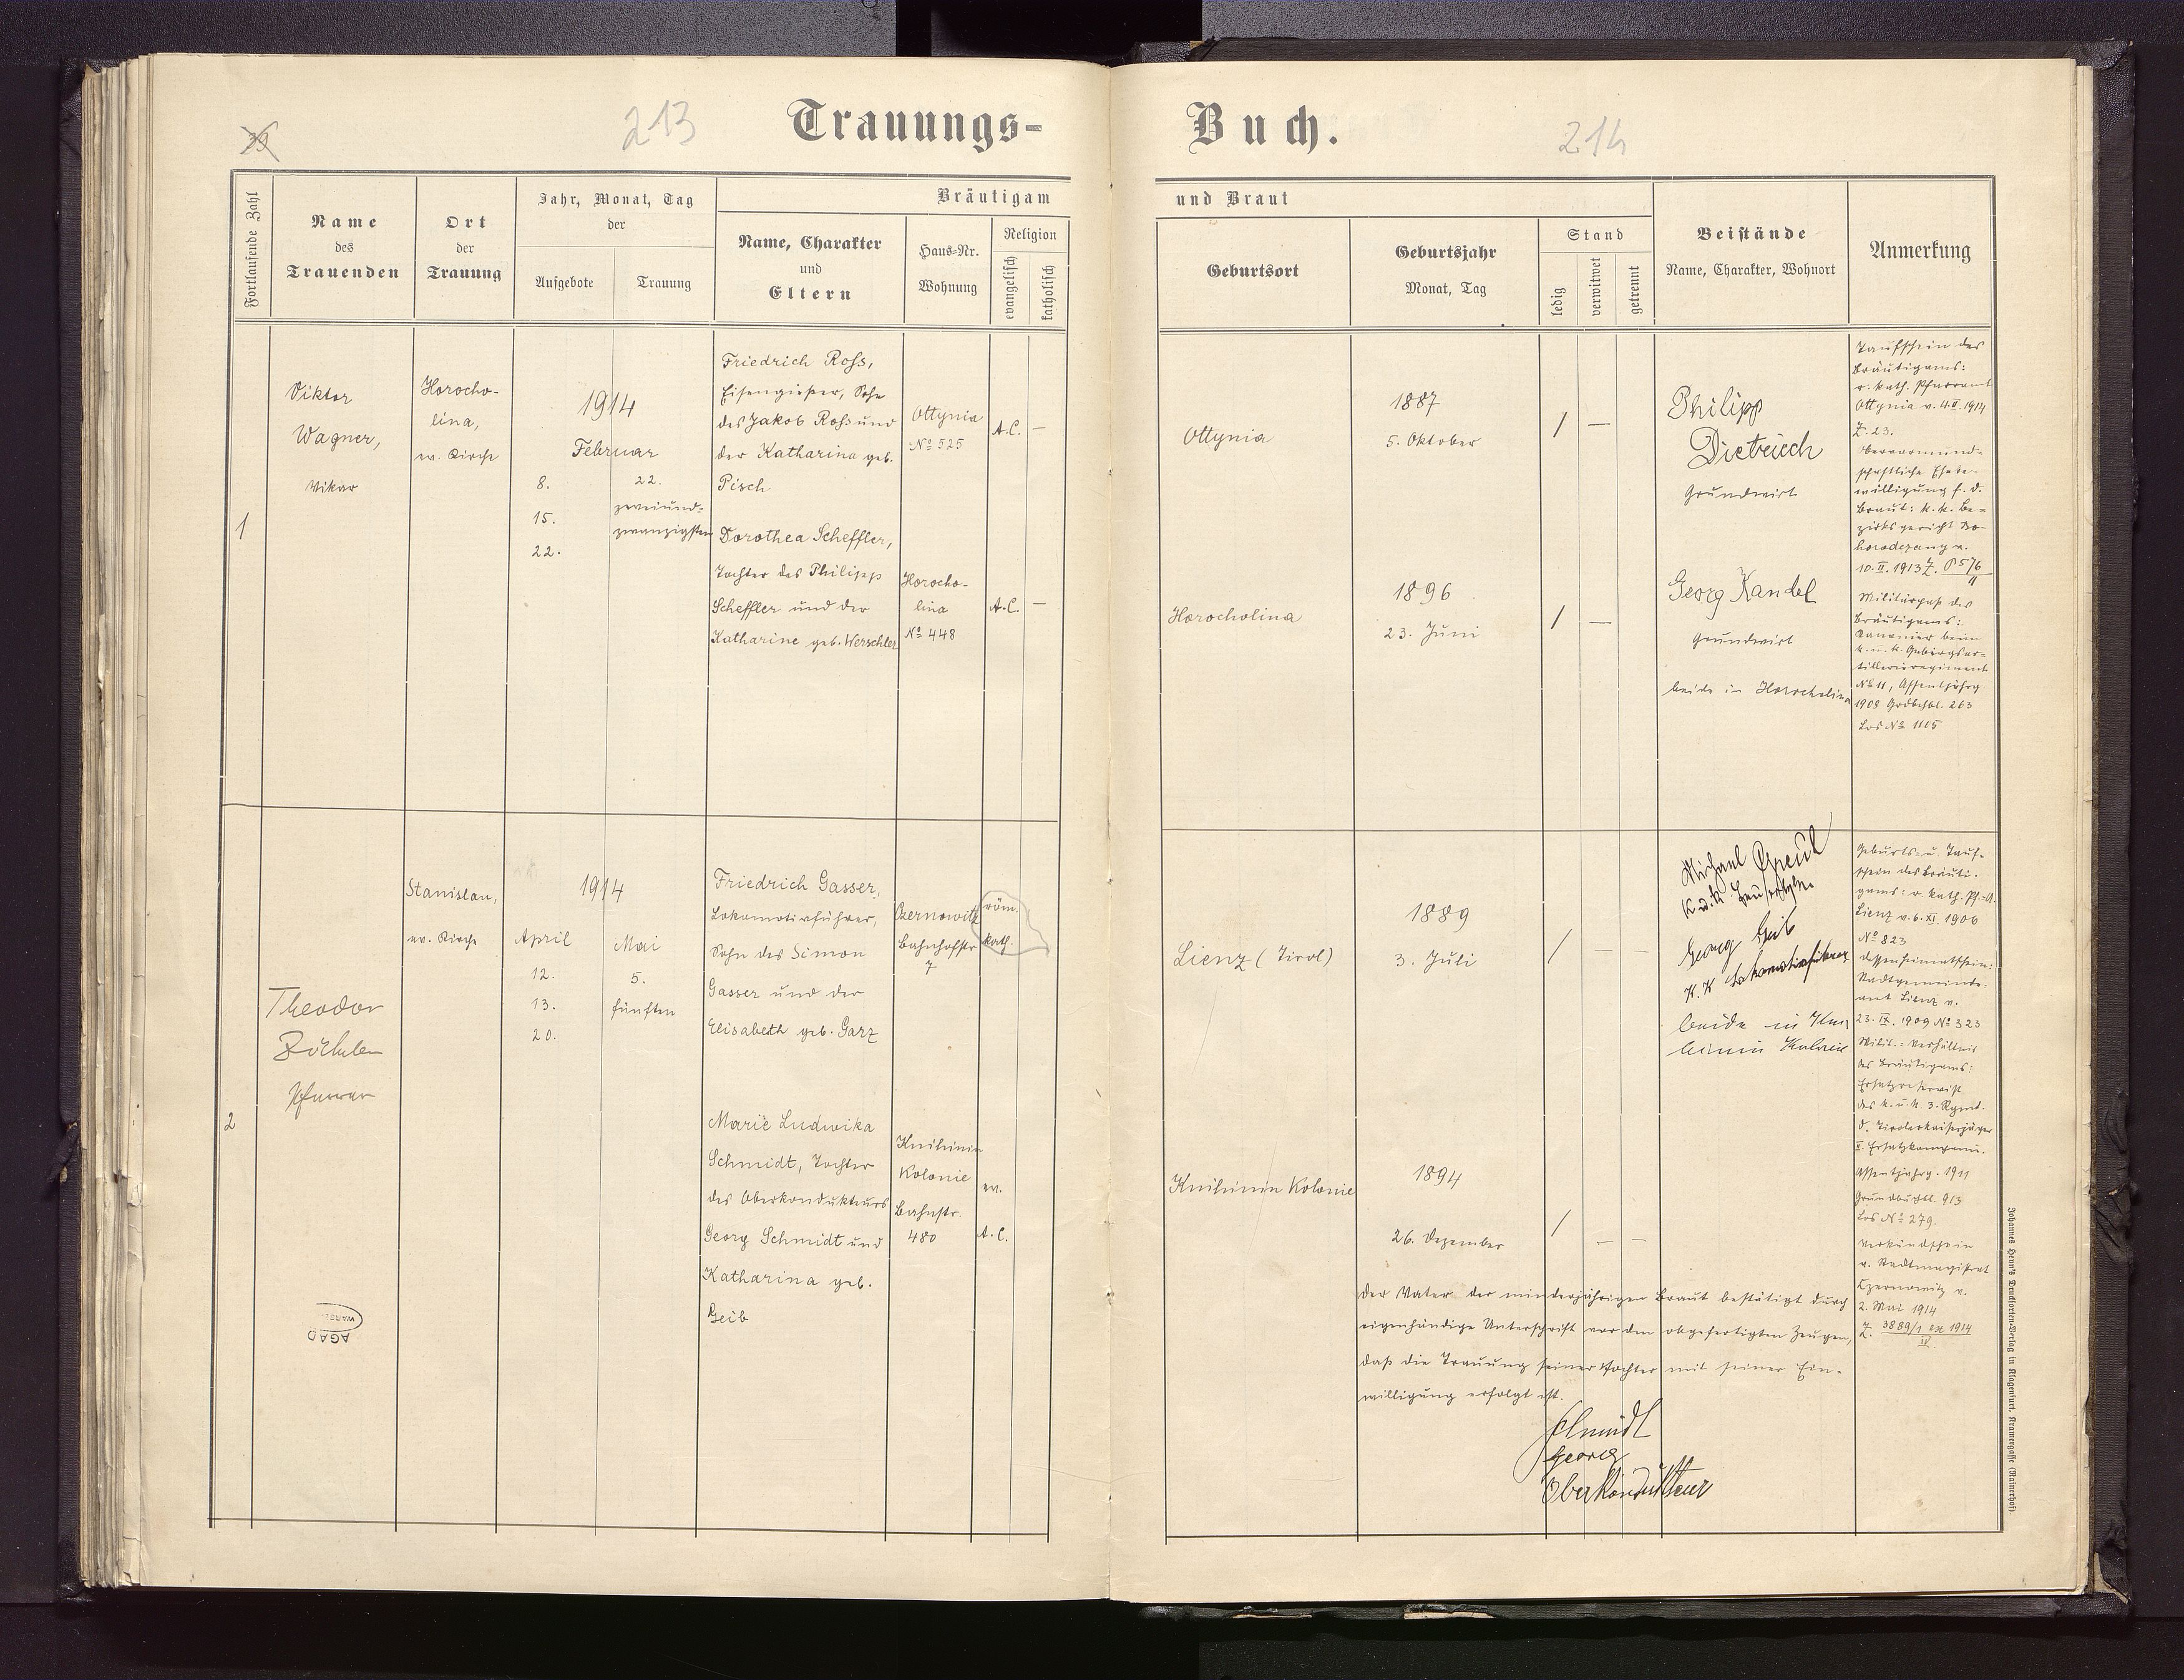 39
213
Trauungs-
Buch.
214
Fortlaufende Zahl
Name
des
Trauenden
Ort
der
Trauung
Jahr, Monat, Tag
der
Aufgebote
Trauung
Bräutigam
Name, Charakter
und
Eltern
Haus-Nr.
Wohnung
Religion
evangelisch
katholisch
und Braut
Geburtsort
Geburtsjahr
Monat, Tag
Stand
ledig
verwitwet
getrennt
Beistände
Name, Charakter, Wohnort
Anmerkung
1
Viktor
Wagner,
Vikar
Horocho-
lina,
ev. Kirche
1914
Februar
8.
15.
22.
22.
zweiund-
zwanzigsten
Friedrich Roß,
Eisengießer, Sohn
des Jakob Roß und
der Katharina geb.
Pisch
Ottynia
No 525
A.C.
—
Dorothea Scheffler,
Tochter des Philipp
Scheffler und der
Katharine geb. Werschler
Horocho-
lina
No 448
A.C.
—
Ottynia
1887
5. Oktober
/
—
Horocholina
1896
23. Juni
/
—
Philipp
Dietriech
Grundwirt
Georg Kandel
Grundwirt
beide in Horocholina
Taufschein des
Bräutigams:
r. kath. Pfarramt
Ottynia v. 4.II.1914
Z. 23.
Obervormund-
schaftliche Ehebe-
willigung f. d.
Braut: k. k. Be-
zirksgericht Bo-
horodczany v.
10.II.1913 Z. P 576/11
Militärpaß des
Bräutigams:
Kanonier beim
k. u. k. Gebirgsar-
tillerieregiment
No 11, Assentjahrg
1908 Grdbchbl. 263
Los No 1115
2
Theodor
Zöckler
Pfarrer
Stanislau,
ev. Kirche
1914
April
12.
13.
20.
Mai
5.
fünften
Friedrich Gasser,
Lokomotivführer,
Sohn des Simon
Gasser und der
Elisabeth geb. Garz
Czernowitz
Bahnhofstr
7
röm.
kath.
Marie Ludwika
Schmidt, Tochter
des Oberkondukteurs
Georg Schmidt und
Katharina geb.
Geib
Knihinin
Kolonie
Bahnstr.
480
ev.
A.C.
Lienz (Tirol)
1889
3. Juli
/
— —
Knihinin Kolonie
1894
26. Dezember
/
— —
Michael
K. u. K.
Georg Geib
K. K. Lokomotivführer
beide in Kni
hinin Kolonie
Geburts- u. Tauf-
schein des Bräuti-
gams: r. kath. Pf.-A.
Lienz v. 6. XI. 1906
No 823
dessen Heimatschein:
Stadtgemeinde-
amt Lienz v.
23. IX. 1909 No 323
Milit.-Verhältnis
des Bräutigams:
Ersatzreservist
des k. u. k. 3. Rgmt.
d. Tiroler Kaiserjäger
II. Ersatzkompanie.
Assentjahrg. 1911
Grundbuchbl. 913
Los No 279.
Verkündschein
v. Stadtmagistrat
Czernowitz v.
2. Mai 1914
Z. 3889/1 ex 1914
IV
Der Vater der minderjährigen Braut bestätigt durch
eigenhändige Unterschrift vor den obgefertigten Zeugen,
daß die Trauung seiner Tochter mit seiner Ein-
willigung erfolgt ist.
Schmidt
Georg
Oberkondukteur
AGAD
Johannes Heyn's Drucksorten-Verlag in Klagenfurt, Kramergasse (Rainerhof).